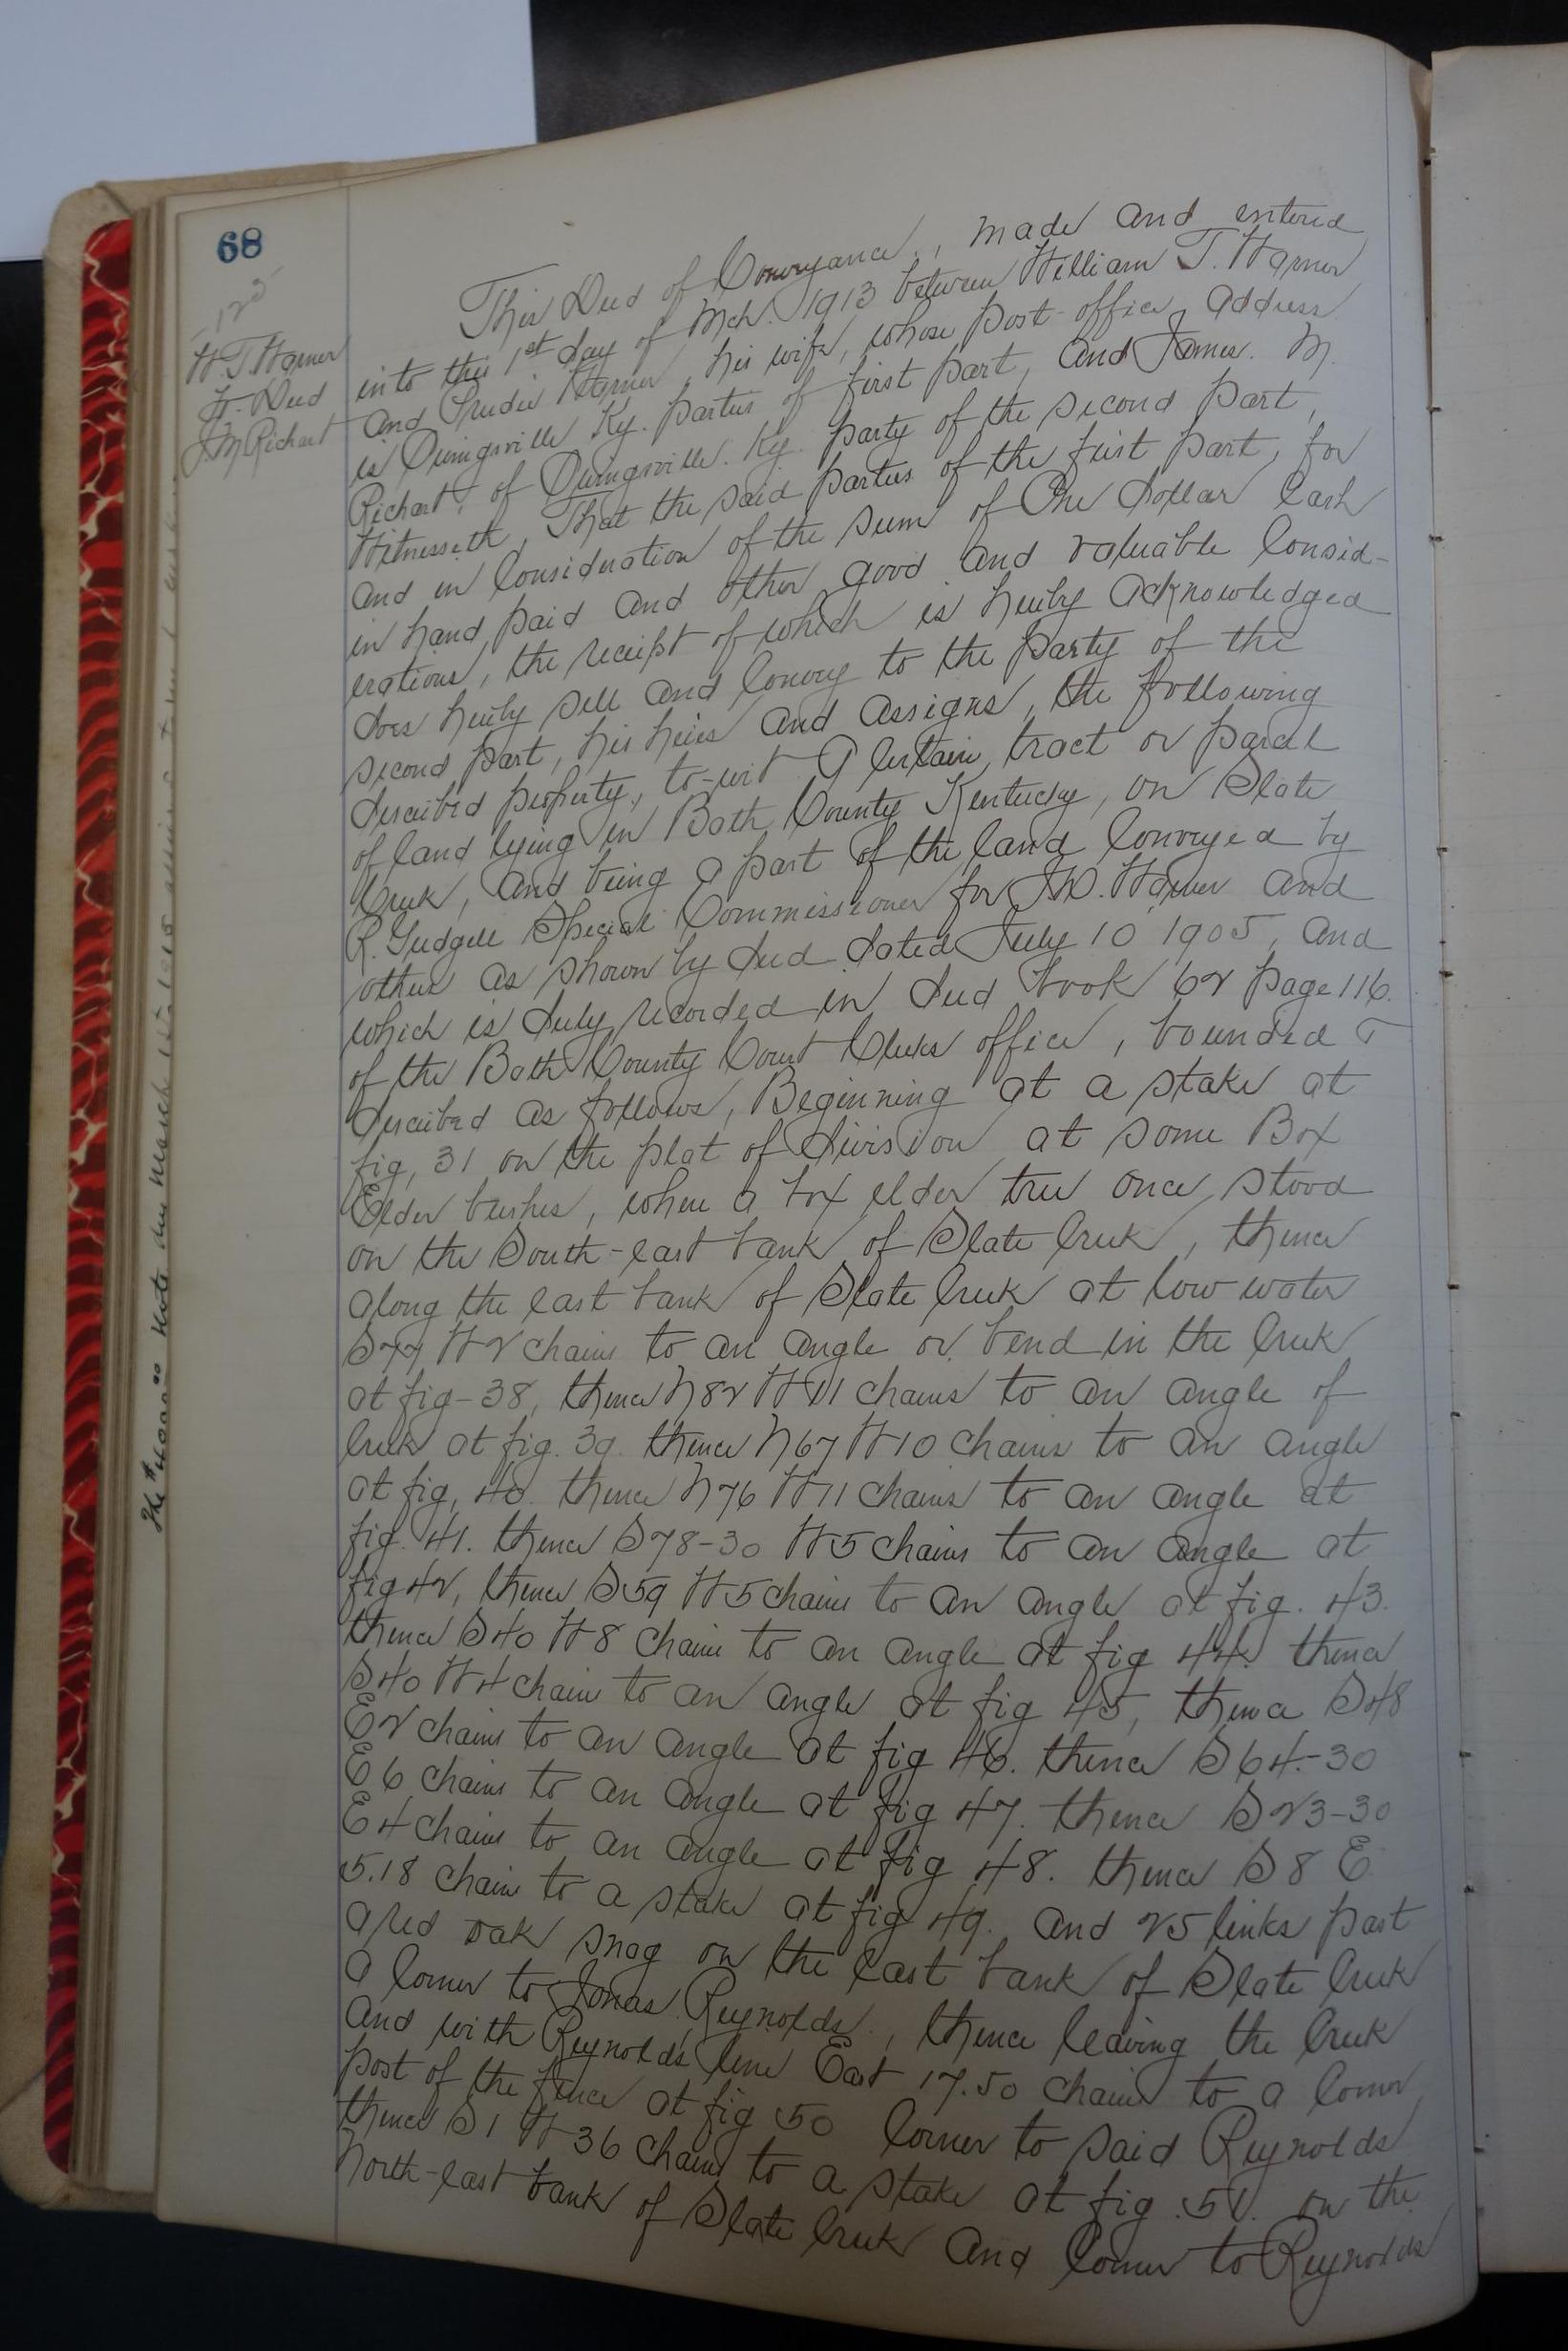 68
125
W.T Warner
Fr. Deed
J.M Richart
This Deed of Conveyance, made and entered
into this 1st day of Mch. 1913 between William T. Warner
and Prudie Warner, his wife, whose post-office address
is Owingsville Ky. parties of first part, and James. M.
Richart, of Owingsville. Ky. party of the second part,
Witnesseth, That the said parties of the first part, for
and in Consideration of the sum of One Dollar Cash
in hand paid and other good and valuable Consid-
erations, the receipt of which is hereby acknowledged
does hereby sell and Convey to the party of the
second part, his heirs and assigns, the following
described property, to-wit A Certain tract or parcel
of land lying in Bath County Kentucky, on Slate
Creek, and being a part of the land Conveyed by
R. Gudgell Special Commissioner for J.D. Warner and
others as shown by deed dated July 10 1905, and
which is duly recorded in deed book 62 page 116.
of the Bath County Court Clerks office, bounded &
described as follows, Beginning at a stake at
fig, 31 on the plat of division at some Box
Elder bushes, where a box elder tree once stood
on the South-east bank of Slate Creek, thence
along the east bank of Slate Creek at low water
S77 W2 chains to an angle or bend in the Creek
at fig-38, thence N82 W11 chains to an angle of
Creek at fig. 39. thence N67 W10 chains to an angle
at fig, 40. thence N76 W11 chains to an angle at
fig. 41. thence S78-30 W5 chains to an angle at
fig 42, thence S59 W5 chains to an angle at fig. 43.
thence S40 W8 chains to an angle at fig 44. thence
S40 W4 chains to an angle at fig 45, thence S48
E2 chains to an angle at fig 46. thence S64-30
E6 chains to an angle at fig 47. thence S23-30
E4 chains to an angle at fig 48. thence S8 E
5.18 chains to a stake at fig 49. and 25 links past
a red oak snag on the east bank of Slate Creek
a Corner to Jonas Reynolds, thence leaving the Creek
and with Reynolds line East 17.50 chains to a Corner
post of the fence at fig 50 Corner to said Reynolds
thence S1 W 36 chains to a stake at fig. 51. on the
North-east bank of Slate Creek and Corner to Reynolds
The $4000.00 Note due March 1st 1915